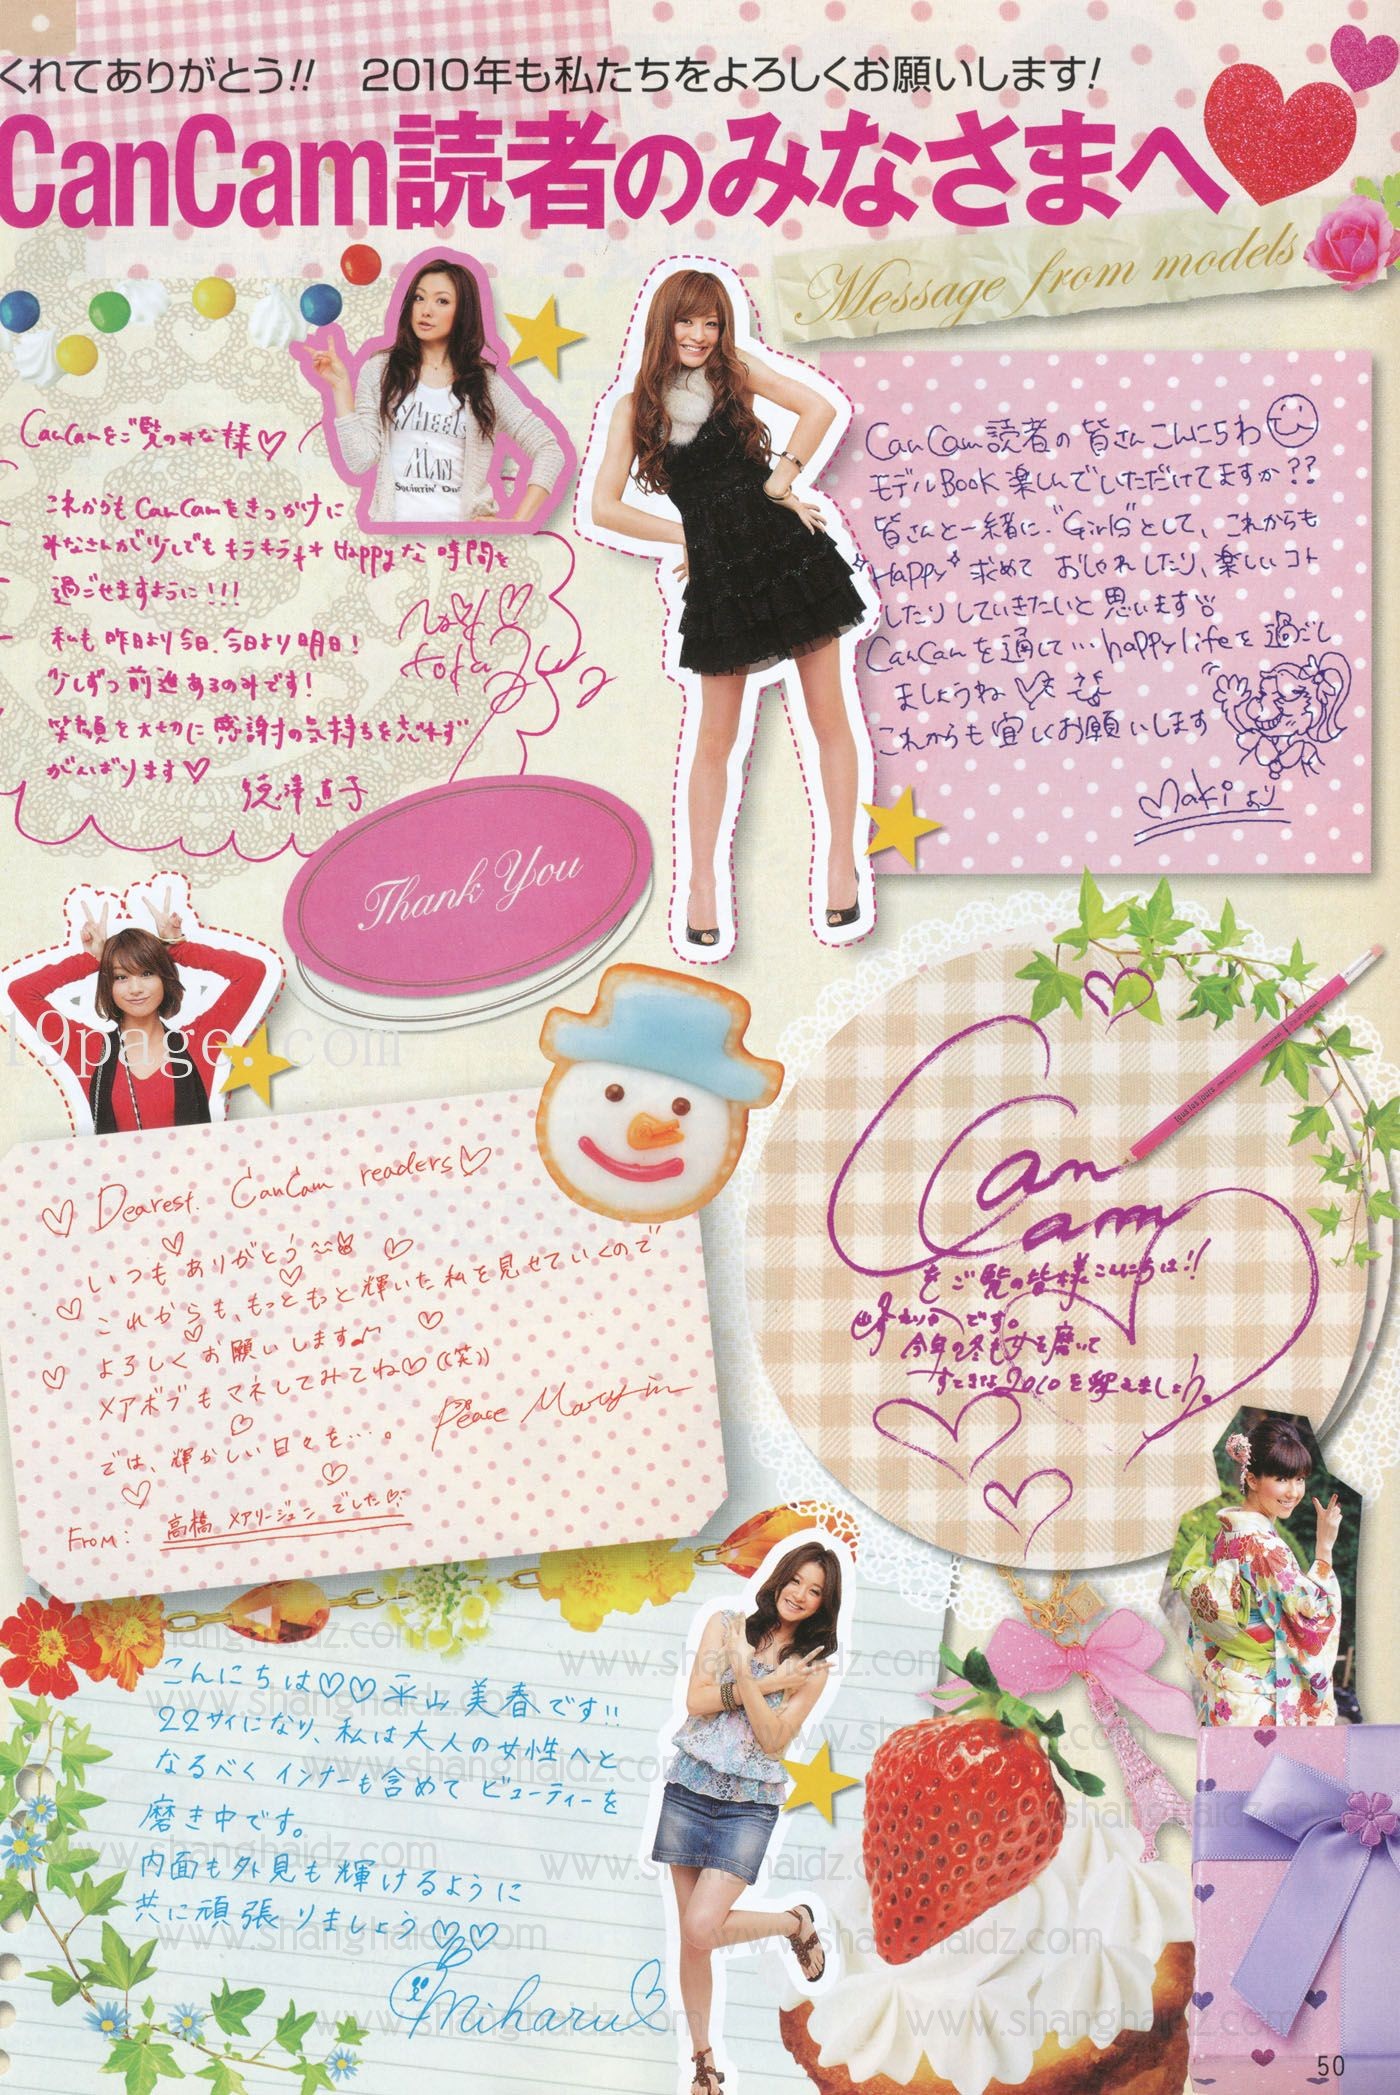 くれてありがとう!!　2010年も私たちをよろしくお願いします!
CanCam読者のみなさまへ
Message from models
CanCamをご覧のみな様♡
これからもCanCamをきっかけに
みなさんが少しでもキラキラ Happyな時間を
過ごせますように!!!
私も昨日より今日、今日より明日!
少しずつ前進あるのみです!
笑顔を大切に感謝の気持ちを忘れず
がんばります♡
徳澤直子
WHEELS
MAN
SQUIRTIN'
CanCam読者の皆さんこんにちわ
モデルBook楽しんでいただけてますか??
皆さんと一緒に"Girls"として、これからも
Happy求めて おしゃれしたり、楽しいコト
したりしていきたいと思います
CanCamを通して…happy lifeを過ごし
ましょうね♡
これからも宜しくお願いします
Makiより
Thank You
19page.com
Dearest. CanCam readers♡
いつもありがとう
これからも、もっともっと輝いた私を見せていくので
よろしくお願いします♪
メアボブもマネしてみてね♡((笑))
では、輝かしい日々を…。
Peace
From: 高橋メアリージュンでした♡
CanCam
をご覧の皆様こんにちは!!
です。
今年の冬も女を磨いて
すてきな2010を迎えましょう。
tous les jours
こんにちは♡♡平山美春です!!
22サイになり、私は大人の女性へと
なるべくインナーも含めてビューティーを
磨き中です。
内面も外見も輝けるように
共に頑張りましょう♡♡
Miharu
www.shanghaidz.com
50